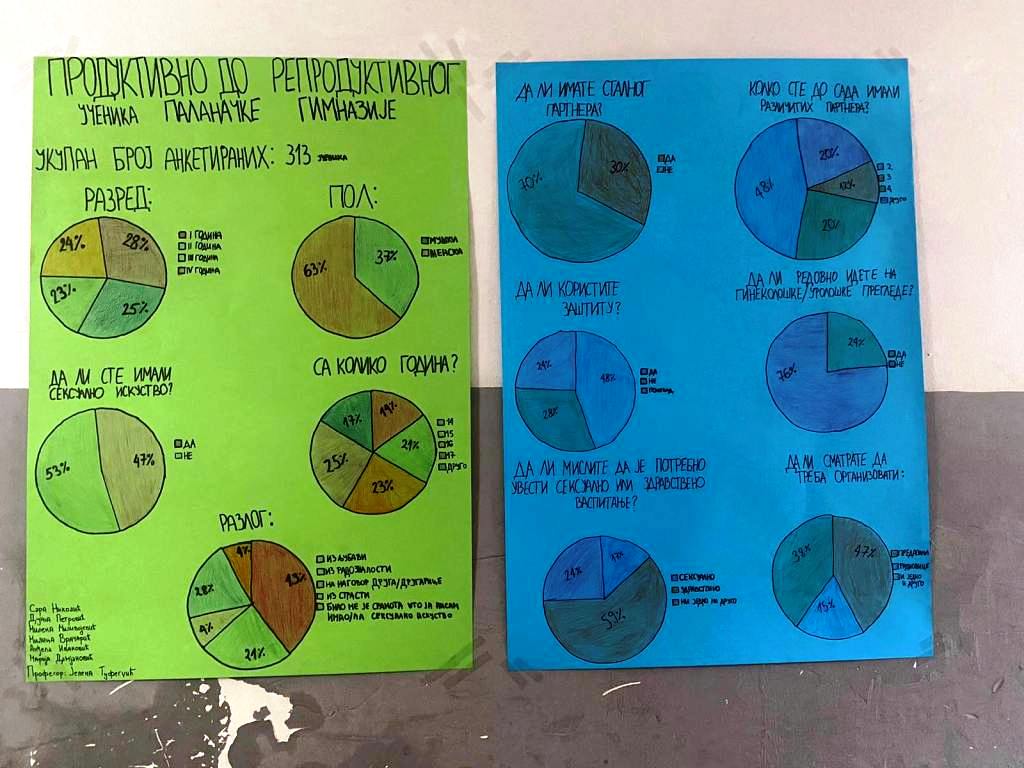 ПРОДУКТИВНО ДО РЕПРОДУКТИВНОГ
УЧЕНИКА ПАЛАНАЧКЕ ГИМНАЗИЈЕ
УКУПАН БРОЈ АНКЕТИРАНИХ: 313 УЧЕНИКА
РАЗРЕД:
24%
28%
23%
25%
I ГОДИНА
II ГОДИНА
III ГОДИНА
IV ГОДИНА
ПОЛ:
63%
37%
МУШКИ
ЖЕНСКИ
ДА ЛИ СТЕ ИМАЛИ
СЕКСУАЛНО ИСКУСТВО?
53%
47%
ДА
НЕ
СА КОЛИКО ГОДИНА?
17%
14%
21%
25%
23%
14
15
16
17
ДРУГО
РАЗЛОГ:
28%
4%
21%
ИЗ ЉУБАВИ
ИЗ РАДОЗНАЛОСТИ
НА НАГОВОР ДРУГА/ДРУГАРИЦЕ
ИЗ СТРАСТИ
БИЛО МЕ ЈЕ СРАМОТА ШТО ЈА НИСАМ
ИМАО/ЛА СЕКСУАЛНО ИСКУСТВО
Сара Николић
Дуња Петровић
Милена
Милица
Анђела
Марија
Професор: Јелена Туфегџић
ДА ЛИ ИМАТЕ СТАЛНОГ
ПАРТНЕРА?
70%
30%
ДА
НЕ
КОЛКО СТЕ ДО САДА ИМАЛИ
РАЗЛИЧИТИХ ПАРТНЕРА?
20%
48%
12%
20%
2
3
4
ДРУГО
ДА ЛИ КОРИСТИТЕ
ЗАШТИТУ?
24%
48%
28%
ДА
НЕ
ПОНЕКАД
ДА ЛИ РЕДОВНО ИДЕТЕ НА
ГИНЕКОЛОШКЕ/УРОЛОШКЕ ПРЕГЛЕДЕ?
76%
24%
ДА
НЕ
ДА ЛИ МИСЛИТЕ ДА ЈЕ ПОТРЕБНО
УВЕСТИ СЕКСУАЛНО ИЛИ ЗДРАВСТВЕНО
ВАСПИТАЊЕ?
24%
17%
59%
СЕКСУАЛНО
ЗДРАВСТВЕНО
НИ ЈЕДНО НИ ДРУГО
ДА ЛИ СМАТРАТЕ ДА
ТРЕБА ОРГАНИЗОВАТИ:
38%
47%
15%
ПРЕДАВАЊА
РАДИОНИЦЕ
И ЈЕДНО
И ДРУГО